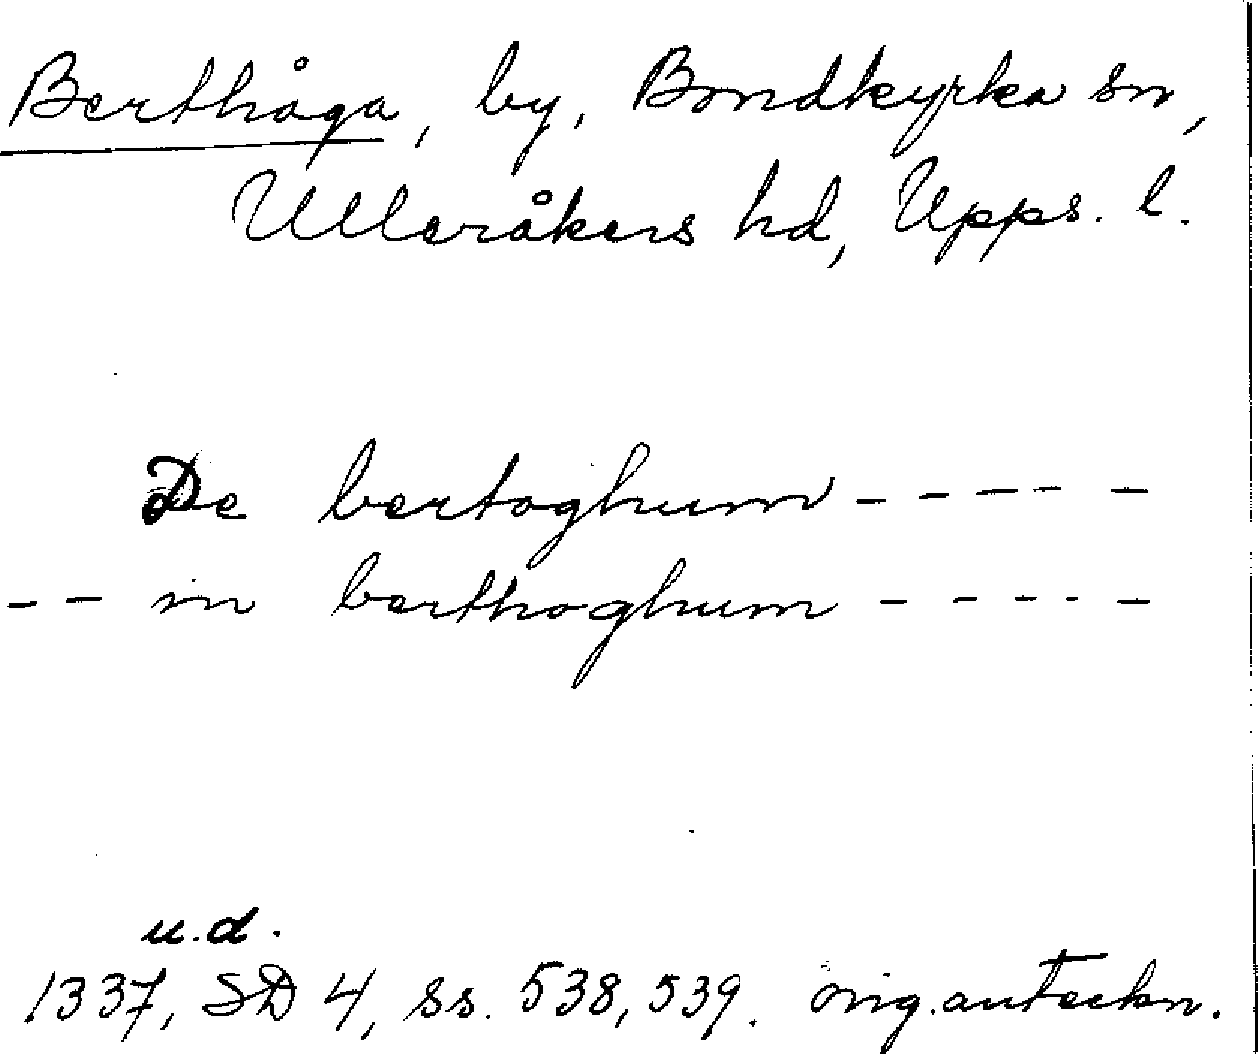 Berthåga, by, Bondkyrka sn,
Ulleråkers hd, Upps. l.
De bertoghum - - - - -
- - in berthoghum - - - - -
u.d.
1337, SD 4, ss. 538, 539. orig.anteckn.